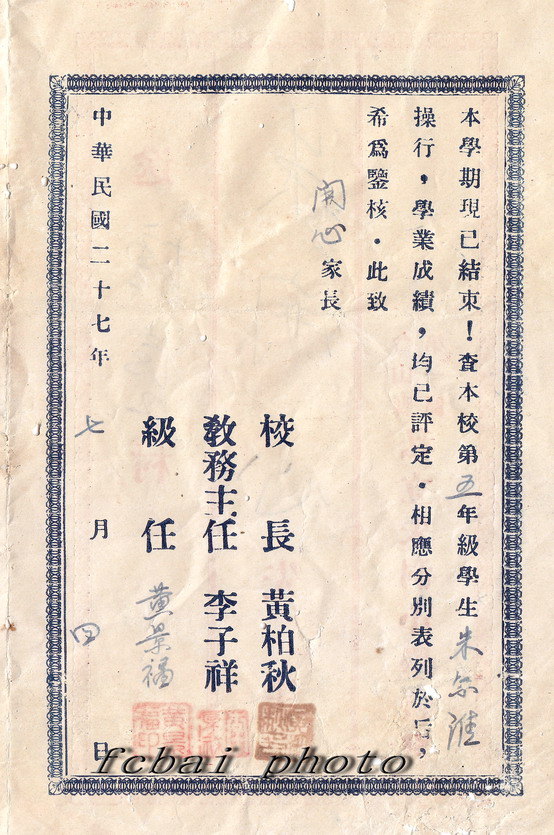 本學期現已結束！查本校第五年級學生朱
操行，學業成績，均已評定．相應分別表列於后，
希爲鑒核．此致
開心家長
校長 黃柏秋
教務主任 李子祥
級任 黃景福
中華民國二十七年七月四日
fcbai photo